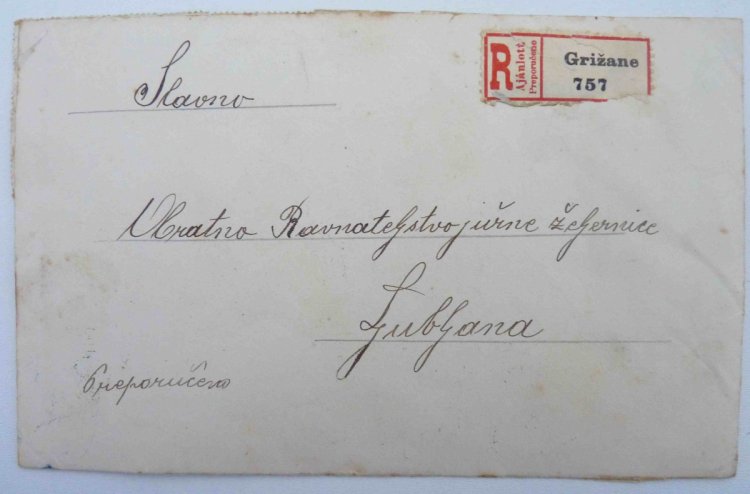 Slavno
R
Ajánlott
Preporučeno
Grižane
757
Obratno Ravnateljstvo južne željeznice
Ljubljana
Preporučeno